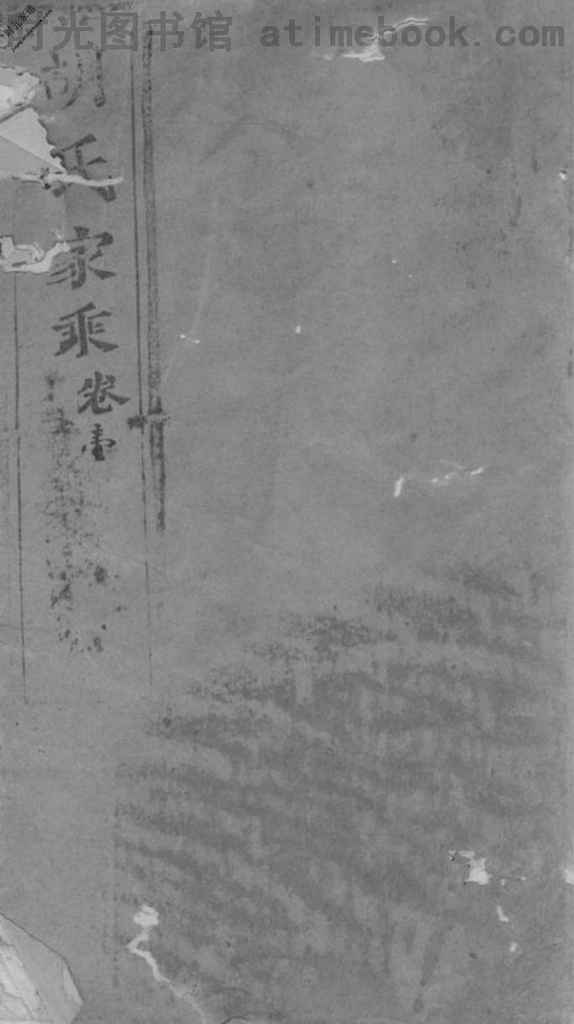 时光图书馆 atimebook.com
胡氏家乘
卷壹